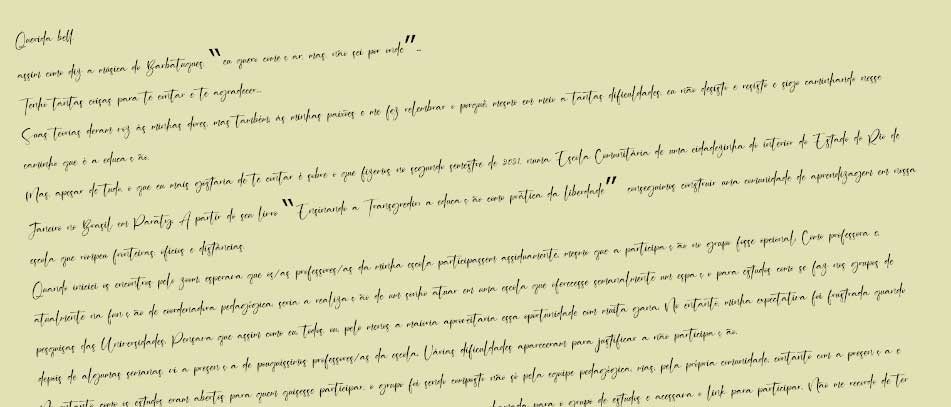 Querida bell
assim como diz a música do Barbatuques, "eu quero come ç ar, mas, não sei por onde"...
Tenho tantas coisas para te contar e te agradecer...
Suas teorias deram voz às minhas dores, mas também, às minhas paixões e me fez relembrar o porquê, mesmo em meio a tantas dificuldades, eu não desisto e resisto e sigo caminhando nesse
caminho que é a educa ç ão.
Mas, apesar de tudo, o que eu mais gostaria de te contar é sobre o que fizemos no segundo semestre de 2021, numa Escola Comunitária de uma cidadezinha do interior do Estado do Rio de
Janeiro no Brasil, em Paraty. A partir do seu livro "Ensinando a Transgredir: a educa ç ão como prática da liberdade" conseguimos construir uma comunidade de aprendizagem em nossa
escola que rompeu fronteiras, ofícios e distâncias.
Quando iniciei os encontros pelo zoom, esperava que os/as professores/as da minha escola participassem assiduamente, mesmo que a participa ç ão no grupo fosse opcional. Como professora e,
atualmente na fun ç ão de coordenadora pedagógica, seria a realiza ç ão de um sonho atuar em uma escola que oferecesse semanalmente um espa ç o para estudos como se faz nos grupos de
pesquisas das Universidades. Pensava que assim como eu, todos, ou pelo menos a maioria aproveitaria essa oportunidade com muita gana. No entanto, minha expectativa foi frustrada quando
depois de algumas semanas, vi a presen ç a de pouquíssimos professores/as da escola. Várias dificuldades apareceram para justificar a não participa ç ão.
No entanto, como os estudos eram abertos para quem quisesse participar, o grupo foi sendo composto não só pela equipe pedagógica, mas, pela própria comunidade, contanto com a presen ç a e
para o grupo de estudos e acessava o link para participar. Não me recordo de ter